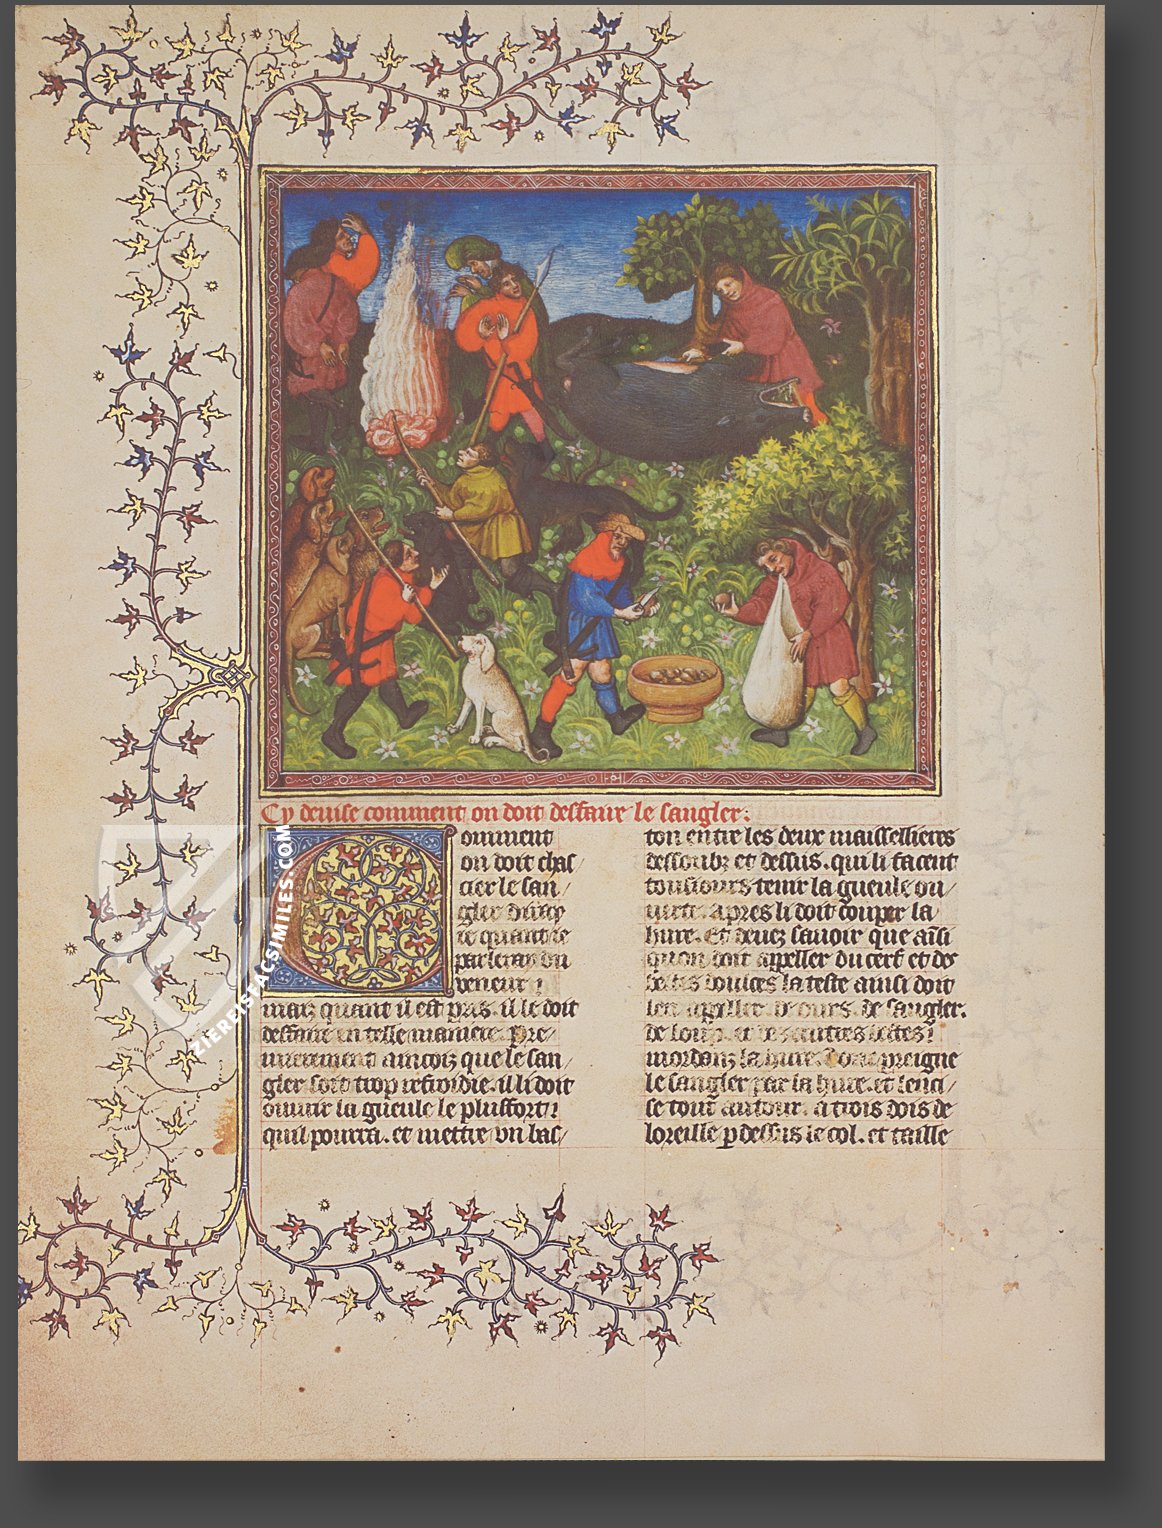 Cy deuise comment on doit deffaire le sangler:
Comment
on doit chaf/
cier le san/
glier
ie quant ie
parleray du
veneur.
maiz quant il est pris. il le doit
deffaire en telle maniere. Pre/
mierement aincoiz que le san/
gler soit trop refroidie. il li doit
ouurir la gueule le plus fort
quil pourra. et mettre vn bas/
ton entre les deux maissellieres
dessoubz et dessus. qui li facent
tousiours tenir la gueule ou/
uerte. apres li doit couper la
hure. Et deuez sauoir que ainsi
quon doit appeller du cerf et des
bestes doulces la teste ainsi doit
len appeller de ours. de sangler.
de loup. et des autres bestes
mordanz la hure. Donc preigne
le sangler par la hure. et lenci/
se tout autour. a trois dois de
loreille p dessus le col. et taille
ZIEREISFACSIMILES.COM